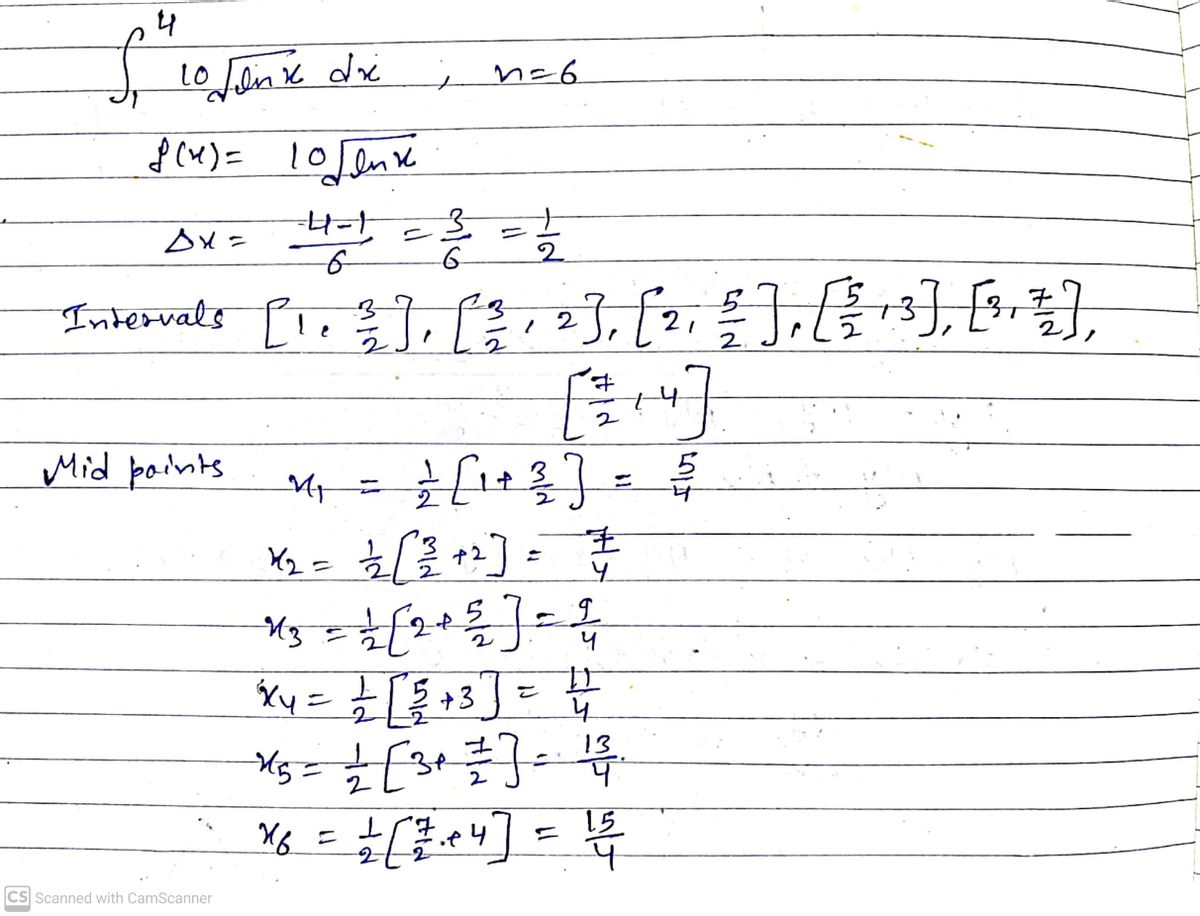 ∫₁⁴ 10√ln x dx , n=6
f(x)= 10√ln x
Δx = 4-1/6 = 3/6 = 1/2
Intervals [1, 3/2], [3/2, 2], [2, 5/2], [5/2, 3], [3, 7/2],
[7/2, 4]
Mid points x₁ = 1/2 [1+ 3/2] = 5/4
x₂ = 1/2 [3/2 +2] = 7/4
x₃ = 1/2 [2+ 5/2] = 9/4
x₄ = 1/2 [5/2 +3] = 11/4
x₅ = 1/2 [3+ 7/2] = 13/4
x₆ = 1/2 [7/2 +4] = 15/4
CS Scanned with CamScanner